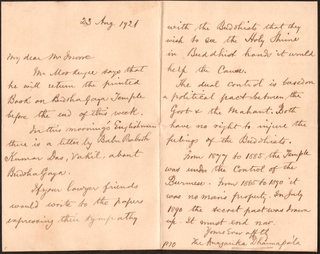 23 Aug 1921
My dear Mr
Mr Mookerjee says that
he will return the printed
Book on BuddhaGaya Temple
before the end of this week.
In this morning's Englishman
there is a letter by Babu
Kumar Das, Vakil, about
BuddhaGaya.
If your lawyer friends
would write to the papers
expressing their sympathy
with the Buddhists that they
wish to see the Holy Shrine
in Buddhist hands it would
help the Cause.
The dual control is based on
a political pact between the
Govt & the Mahant. Both
have no right to injure the
feelings of the Buddhists.
From 1877 to 1885 the Temple
was under the Control of the
Burmese. From 1885 to 1890 it
was no man's property. In July
1890 the secret pact was drawn
up. It must end now.
Yours Ever affly
The Anagarika Dharmapala